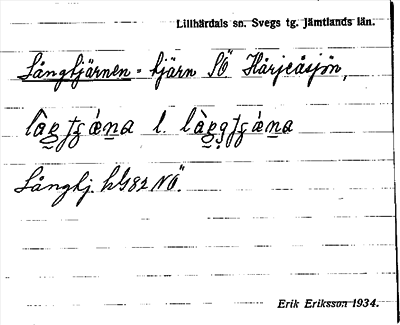 Lillhärdals sn. Svegs tg. Jämtlands län.
Långtjärnen = tjärn SÖ Härjeåsjön,
l. 
Långtj. hG82 NÖ.
Erik Eriksson 1934.